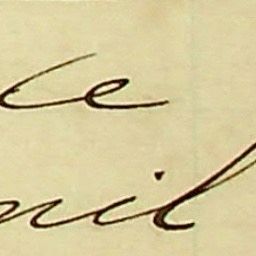 ce
nil